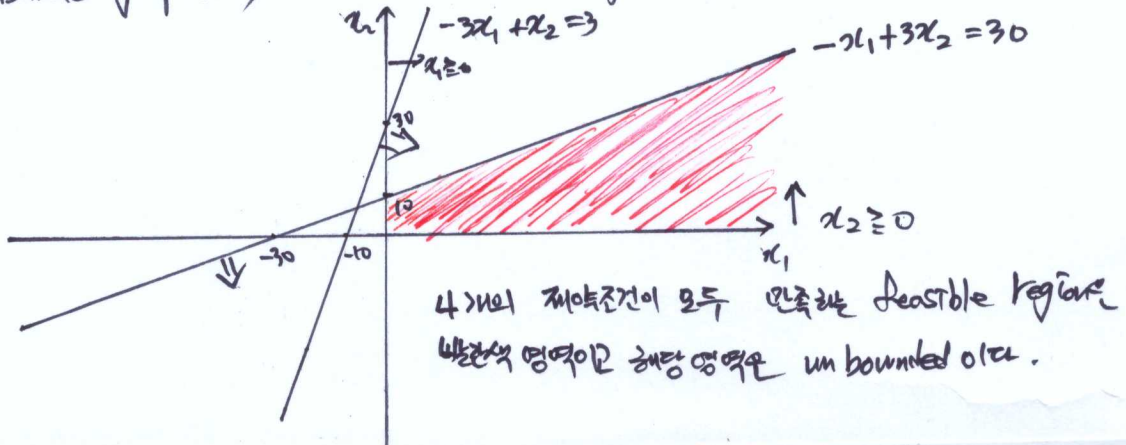 x₂
-3x₁ + x₂ = 3
-x₁ + 3x₂ = 30
x₁ ≧ 0
30
10
x₂ ≧ 0
-30
-10
x₁
4개의 제약조건이 모두 만족하는 feasible region은
빨간색 영역이고 해당 영역은 unbounded 이다.